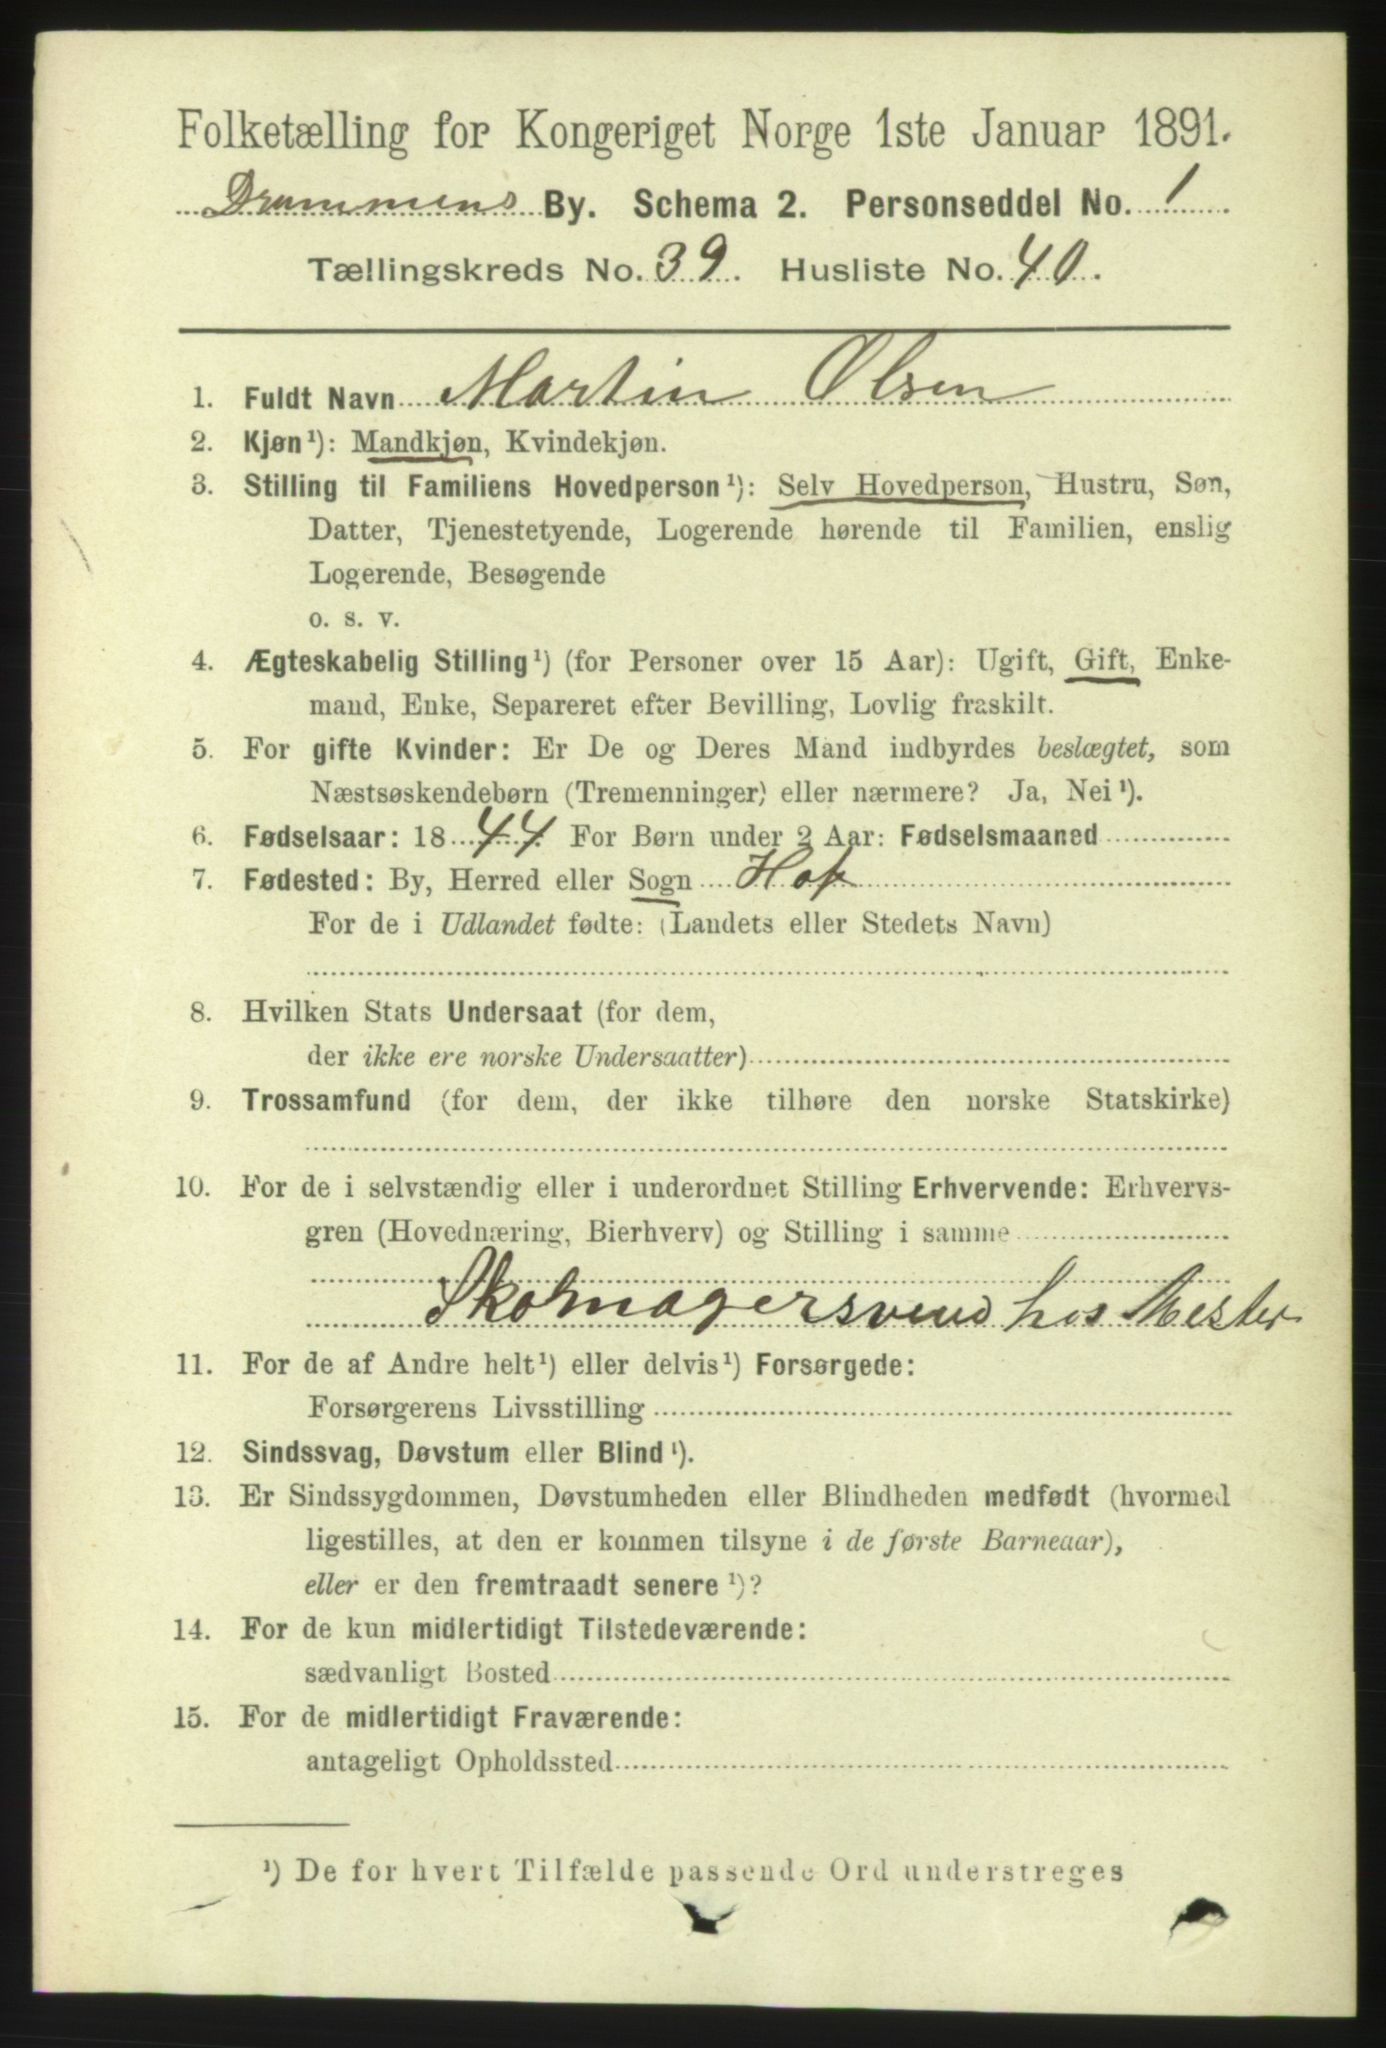 Folketælling for Kongeriget Norge 1ste Januar 1891.
Drammens By. Schema 2. Personseddel No. 1
Tællingskreds No. 39. Husliste No. 40.
1. Fuldt Navn Martin Olsen
2. Kjøn¹): Mandkjøn, Kvindekjøn.
3. Stilling til Familiens Hovedperson¹): Selv Hovedperson, Hustru, Søn,
Datter, Tjenestetyende, Logerende hørende til Familien, enslig
Logerende, Besøgende
o. s. v.
4. Ægteskabelig Stilling¹) (for Personer over 15 Aar): Ugift, Gift, Enke-
mand, Enke, Separeret efter Bevilling, Lovlig fraskilt.
5. For gifte Kvinder: Er De og Deres Mand indbyrdes beslægtet, som
Næstsøskendebørn (Tremenninger) eller nærmere? Ja, Nei¹).
6. Fødselsaar: 1844. For Børn under 2 Aar: Fødselsmaaned
7. Fødested: By, Herred eller Sogn Hof
For de i Udlandet fødte: (Landets eller Stedets Navn)
8. Hvilken Stats Undersaat (for dem,
der ikke ere norske Undersaatter)
9. Trossamfund (for dem, der ikke tilhøre den norske Statskirke)
10. For de i selvstændig eller i underordnet Stilling Erhvervende: Erhvervs-
gren (Hovednæring, Bierhverv) og Stilling i samme
Skomagersvend hos Mester
11. For de af Andre helt¹) eller delvis¹) Forsørgede:
Forsørgerens Livsstilling
12. Sindssvag, Døvstum eller Blind¹).
13. Er Sindssygdommen, Døvstumheden eller Blindheden medfødt (hvormed
ligestilles, at den er kommen tilsyne i de første Barneaar),
eller er den fremtraadt senere¹)?
14. For de kun midlertidigt Tilstedeværende:
sædvanligt Bosted
15. For de midlertidigt Fraværende:
antageligt Opholdssted
¹) De for hvert Tilfælde passende Ord understreges